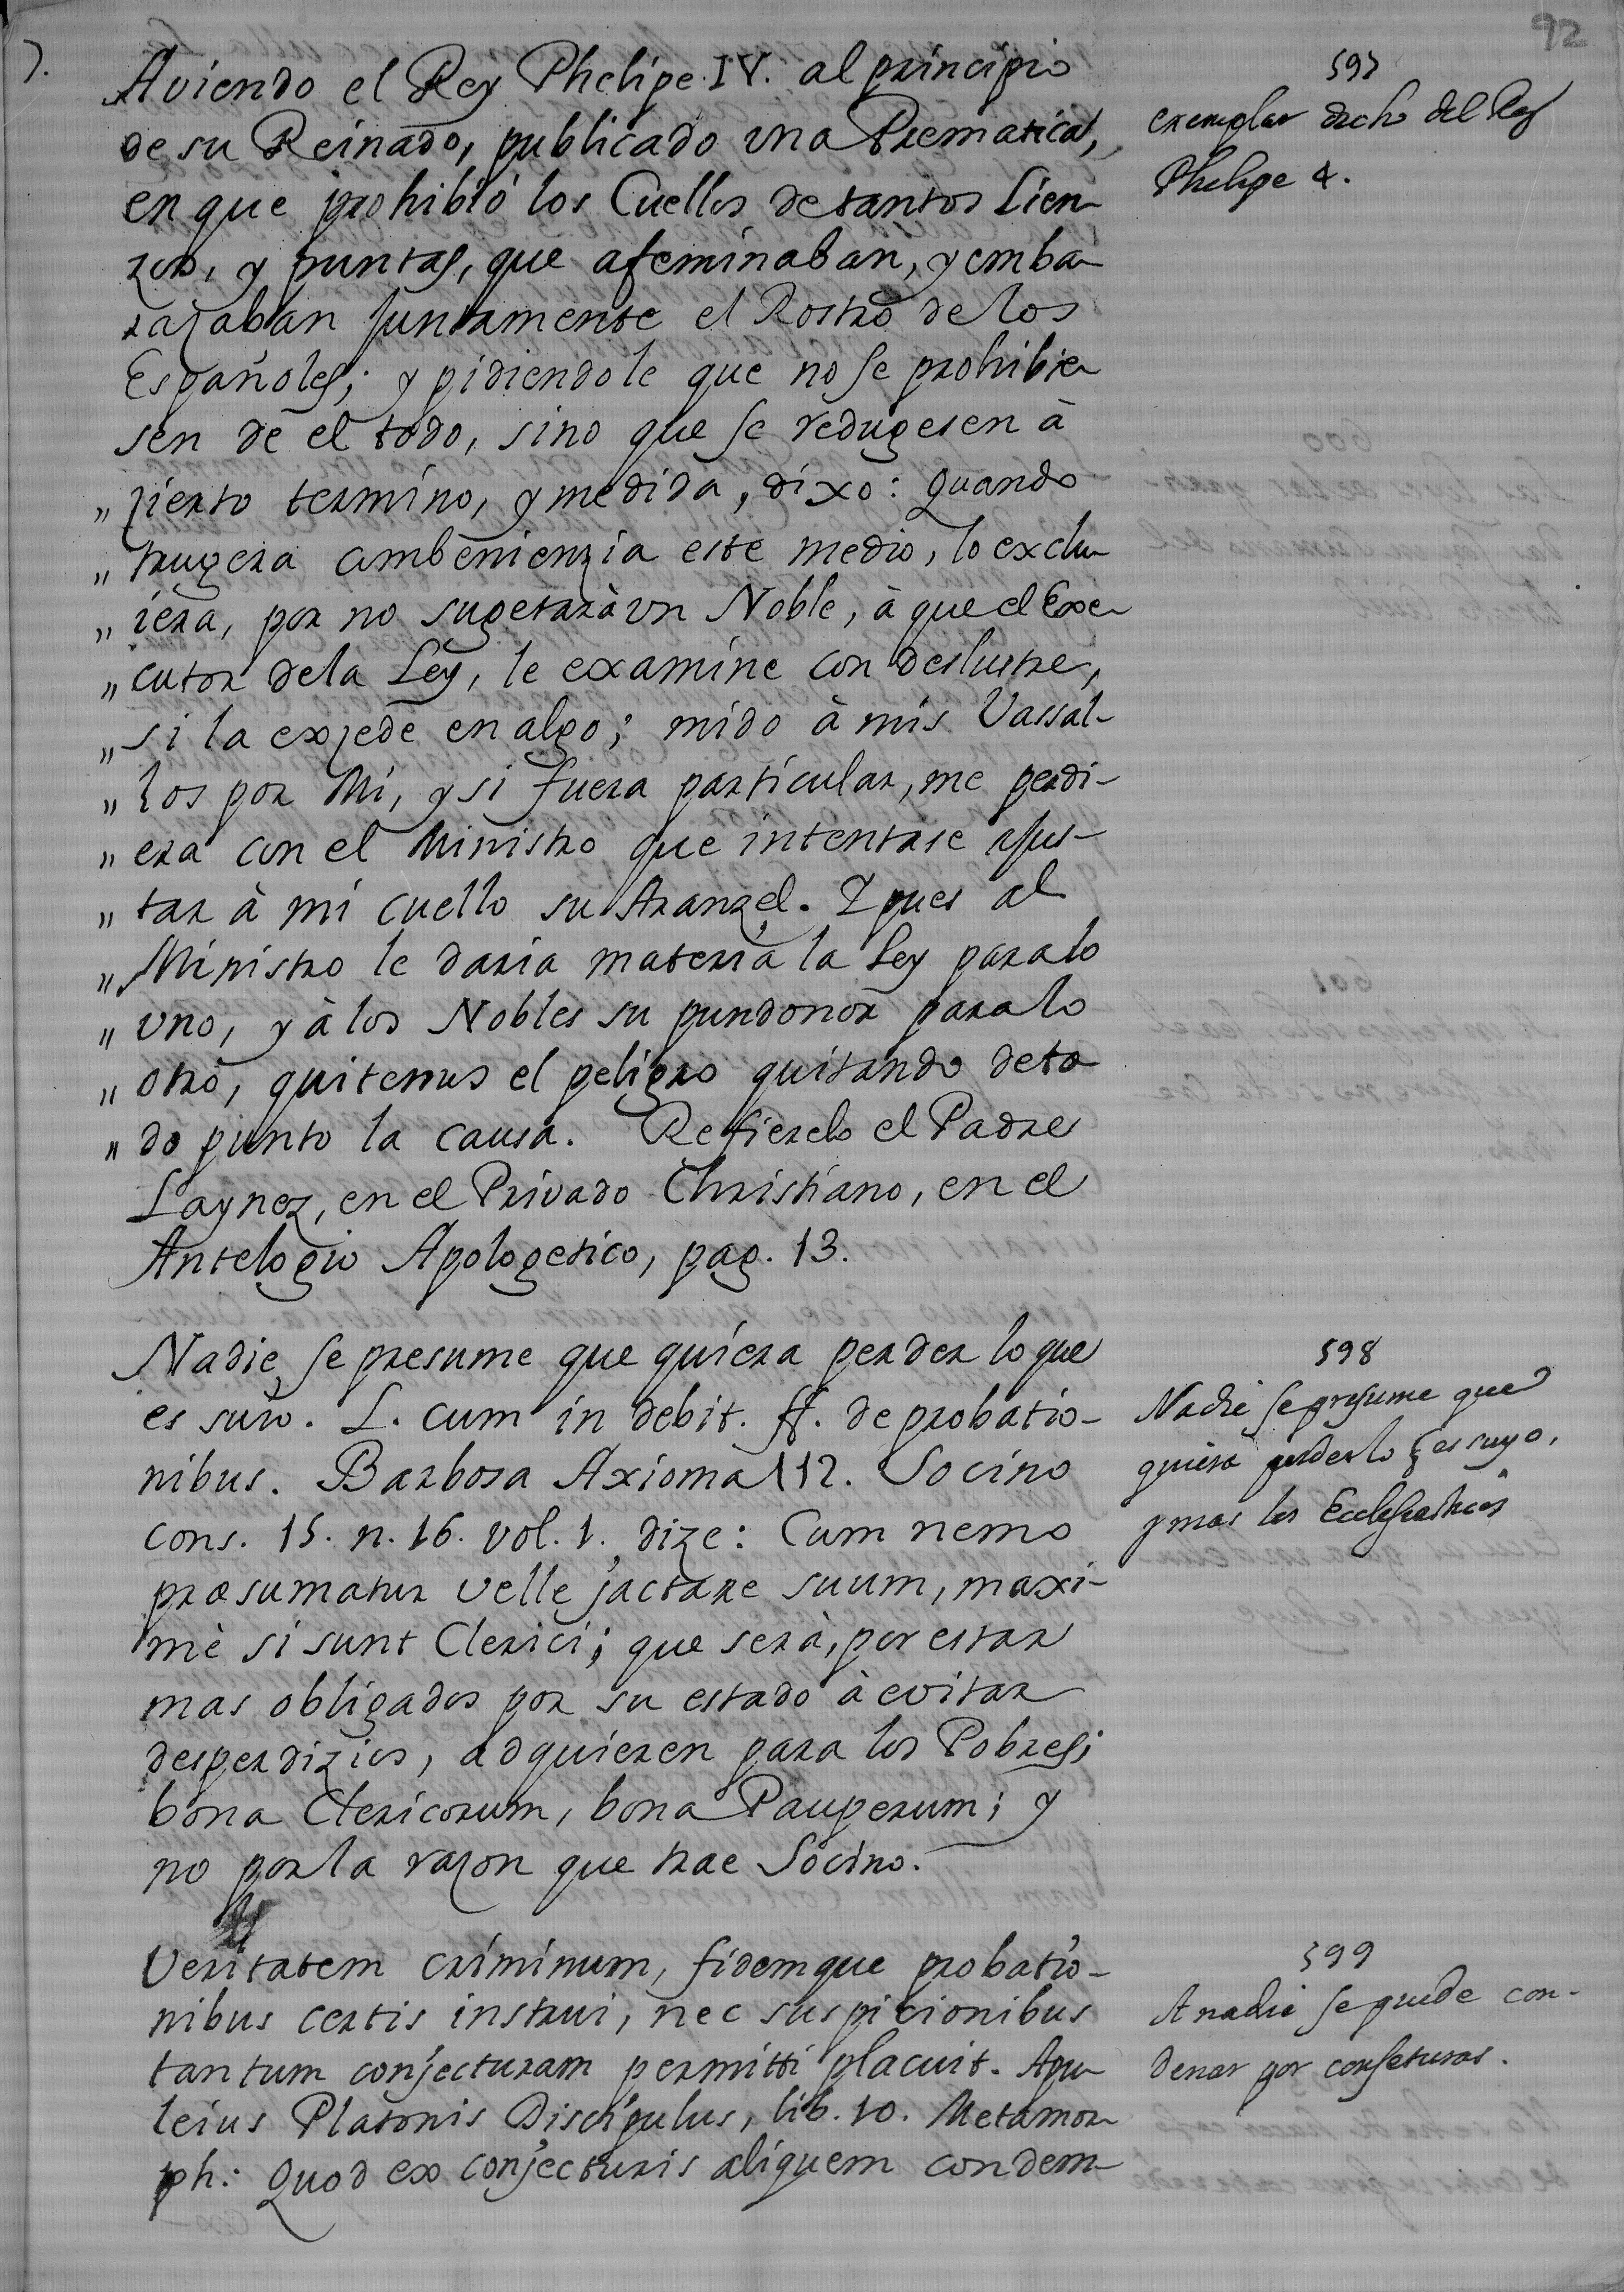 92
7.
Aviendo el Rey Phelipe IV. al principio
de su Reinado, publicado una Prematica,
en que prohibió los Cuellos de tantos Lien-
zos, y puntas, que afeminaban, y emba-
razaban juntamente el Rostro de los
Españoles; y pidiendole que no se prohibie-
sen de el todo, sino que se redugesen à
„ zierto termino, y medida, dixo: Quando
„ trugera combenienzia este medio, lo exclu-
„ iera, por no sugetar à un Noble, à que el Exe-
„ cutor de la Ley, le examine con deslustre,
„ si la exzede en algo; mido à mis Vassal-
„ los por Mi, y si fuera particular, me perdi-
„ era con el Ministro que intentase ajus-
„ tar à mi cuello su Aranzel. Y pues al
„ Ministro le daria materia la Ley para lo
„ uno, y à los Nobles su pundonor para lo
„ otro, quitemos el peligro quitando de to-
„ do punto la causa. Refierelo el Padre
Laynez, en el Privado Christiano, en el
Antelogio Apologetico, pag. 13.
597
exemplar dicho del Rey
Phelipe 4.
Nadie se presume que quiera perder lo que
es suio. L. cum in debit. ff. de probatio-
nibus. Barbosa Axioma 112. Socino
cons. 15. n. 16. vol. 1. dize: Cum nemo
præsumatur velle jactare suum, maxi-
mè si sunt Clerici; que serà, por estar
mas obligados por su estado à evitar
desperdizios, adquieren para los Pobres;
bona Clericorum, bona Pauperum; y
no por la razon que trae Socino.
598
Nadie se presume que
quiera perder lo q es suyo,
y mas los Ecclesiasticos
Veritatem criminum, fidemque probatio-
nibus certis instrui, nec suspicionibus
tantum conjecturam permitti placuit. Apu-
leius Platonis Discipulus, lib. 10. Metamor-
ph: Quod ex conjecturis aliquem condem-
599
A nadie se puede con-
denar por conjeturas.